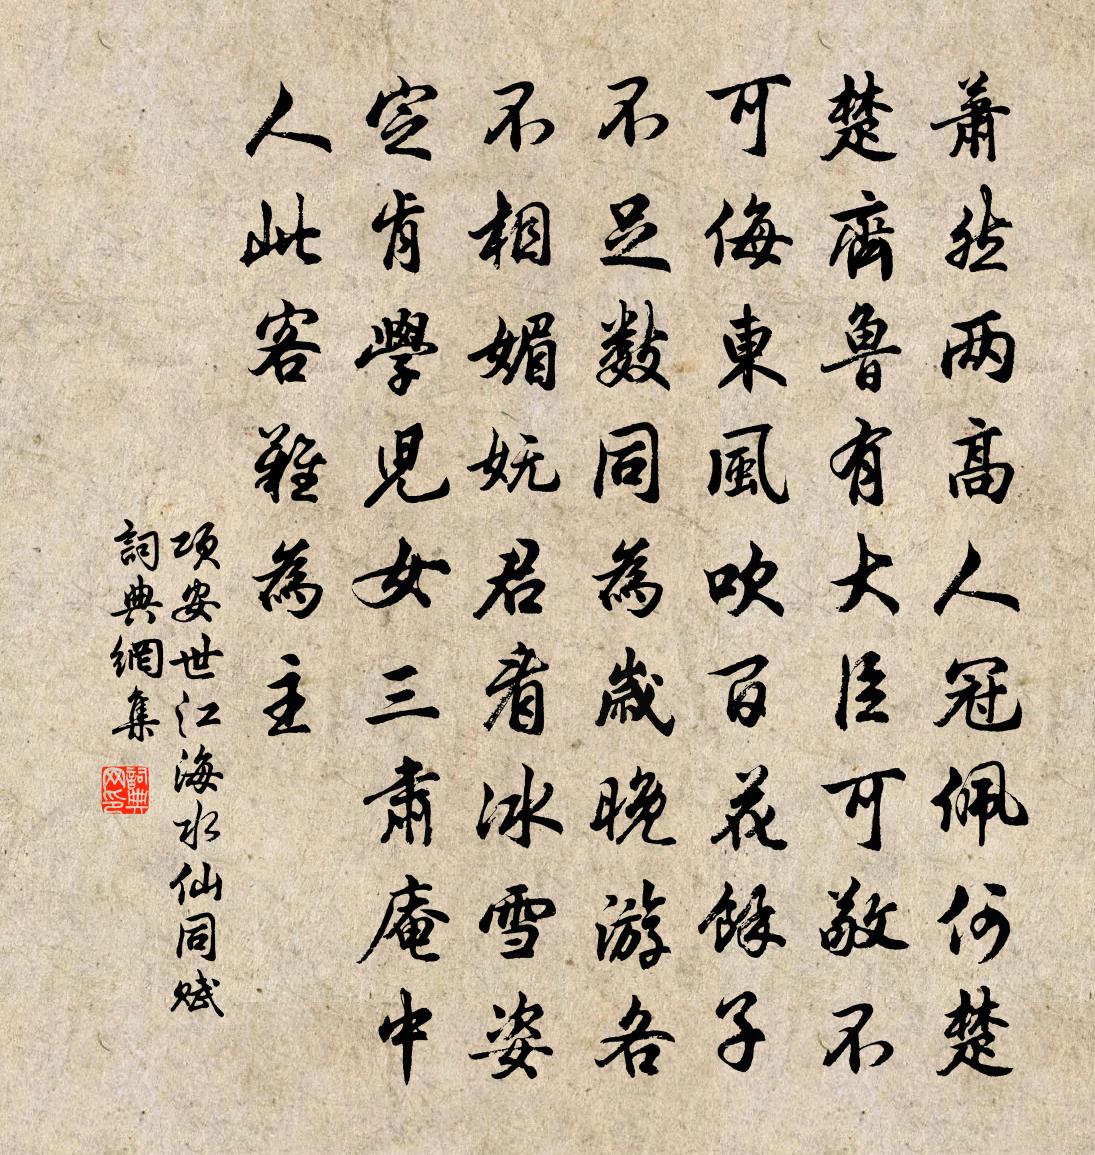 蕭然两高人冠佩何楚
楚齊魯有大臣可敬不
可侮東風吹百花餘子
不足數同為歲晚游各
不相媚妩君看冰雪姿
定肯學児女三肅庵中
人此客難為主
項安世江海水仙同賦
詞典網集
詞典网印